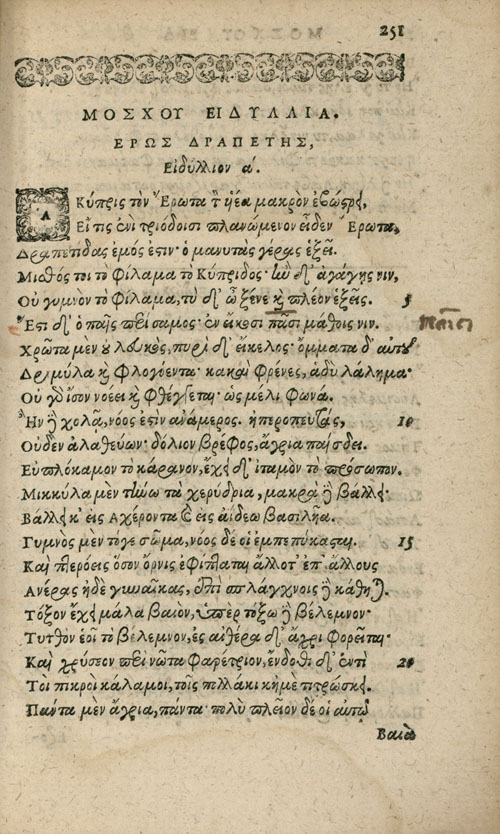 251
ΜΟΣΧΟΥ ΕΙΔΥΛΛΙΑ.
ΕΡΩΣ ΔΡΑΠΕΤΗΣ,
Εἰδύλλιον α΄.
Ἁ Κύπρις τὸν Ἔρωτα τὸν ὑέα μακρὸν ἐβώστρει,
Εἴ τις ἐνὶ τριόδοισι πλανώμενον εἶδεν Ἔρωτα,
Δραπετίδας ἐμός ἐστιν· ὁ μανυτὰς γέρας ἑξεῖ.
Μισθός τοι τὸ φίλαμα τὸ Κύπριδος· ἢν δ' ἀγάγῃς νιν,
Οὐ γυμνὸν τὸ φίλαμα, τὺ δ' ὦ ξένε καὶ πλέον ἑξεῖς. 5
Ἔστι δ' ὁ παῖς περίσαμος· ἐν εἴκοσι πᾶσι μάθοις νιν.
Χρῶτα μὲν οὐ λευκός, πυρὶ δ' εἴκελος· ὄμματα δ' αὐτοῦ
Δριμύλα καὶ φλογόεντα· κακαὶ φρένες, ἁδὺ λάλημα·
Οὐ γὰρ ἴσον νοέει καὶ φθέγγεται· ὡς μέλι φωνά.
Ἢν δὲ χολᾷ, νόος ἐστὶν ἀνάμερος. ἠπεροπευτὰς, 10
Οὐδὲν ἀλαθεύων· δόλιον βρέφος, ἄγρια παίσδει.
Εὐπλόκαμον τὸ κάρανον, ἔχει δ' ἰταμὸν τὸ πρόσωπον.
Μικκύλα μὲν τήνῳ τὰ χερύδρια, μακρὰ δὲ βάλλει·
Βάλλει κ' εἰς Ἀχέροντα καὶ εἰς ἀΐδεω βασιλῆα.
Γυμνὸς μὲν τόγε σῶμα, νόος δέ οἱ ἐμπεπύκασται. 15
Καὶ πτερόεις ὅσον ὄρνις ἐφίπταται ἄλλοτ' ἐπ' ἄλλους
Ἀνέρας ἠδὲ γυναῖκας, ἐπὶ σπλάγχνοις δὲ κάθηται.
Τόξον ἔχει μάλα βαιὸν, ὑπὲρ τόξω δὲ βέλεμνον·
Τυτθὸν ἑοῖ τὸ βέλεμνον, ἐς αἰθέρα δ' ἄχρι φορεῖται·
Καὶ χρύσεον περὶ νῶτα φαρέτριον, ἔνδοθι δ' ἐντὶ 20
Τοὶ πικροὶ κάλαμοι, τοῖς πολλάκι κἠμὲ τιτρώσκει.
Πάντα μὲν ἄγρια, πάντα· πολὺ πλεῖον δέ οἱ αὐτῷ
Βαιὰ